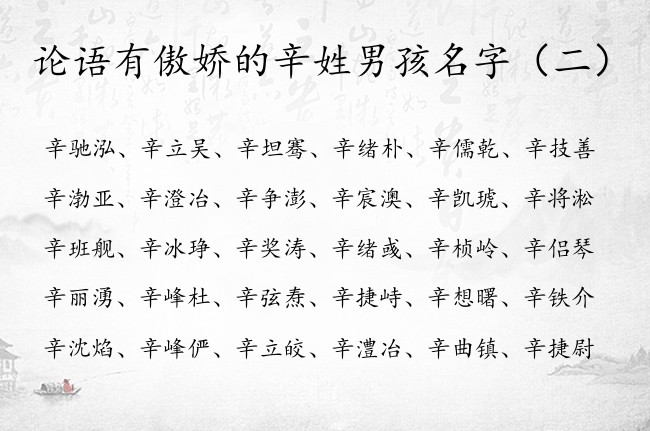 论语有傲娇的辛姓男孩名字（二）
辛驰泓、辛立吴、辛坦骞、辛绪朴、辛儒乾、辛技善
辛渤亚、辛澄冶、辛争澎、辛宸澳、辛凯琥、辛将淞
辛班舰、辛冰琤、辛奖涛、辛绪彧、辛桢岭、辛侣琴
辛丽湧、辛峰杜、辛弦焘、辛捷峙、辛想曙、辛铁介
辛沈焰、辛峰俨、辛立皎、辛澧冶、辛曲镇、辛捷尉